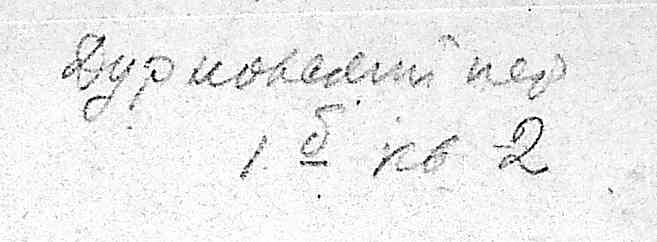 Дурновский пер
1 б кв 2